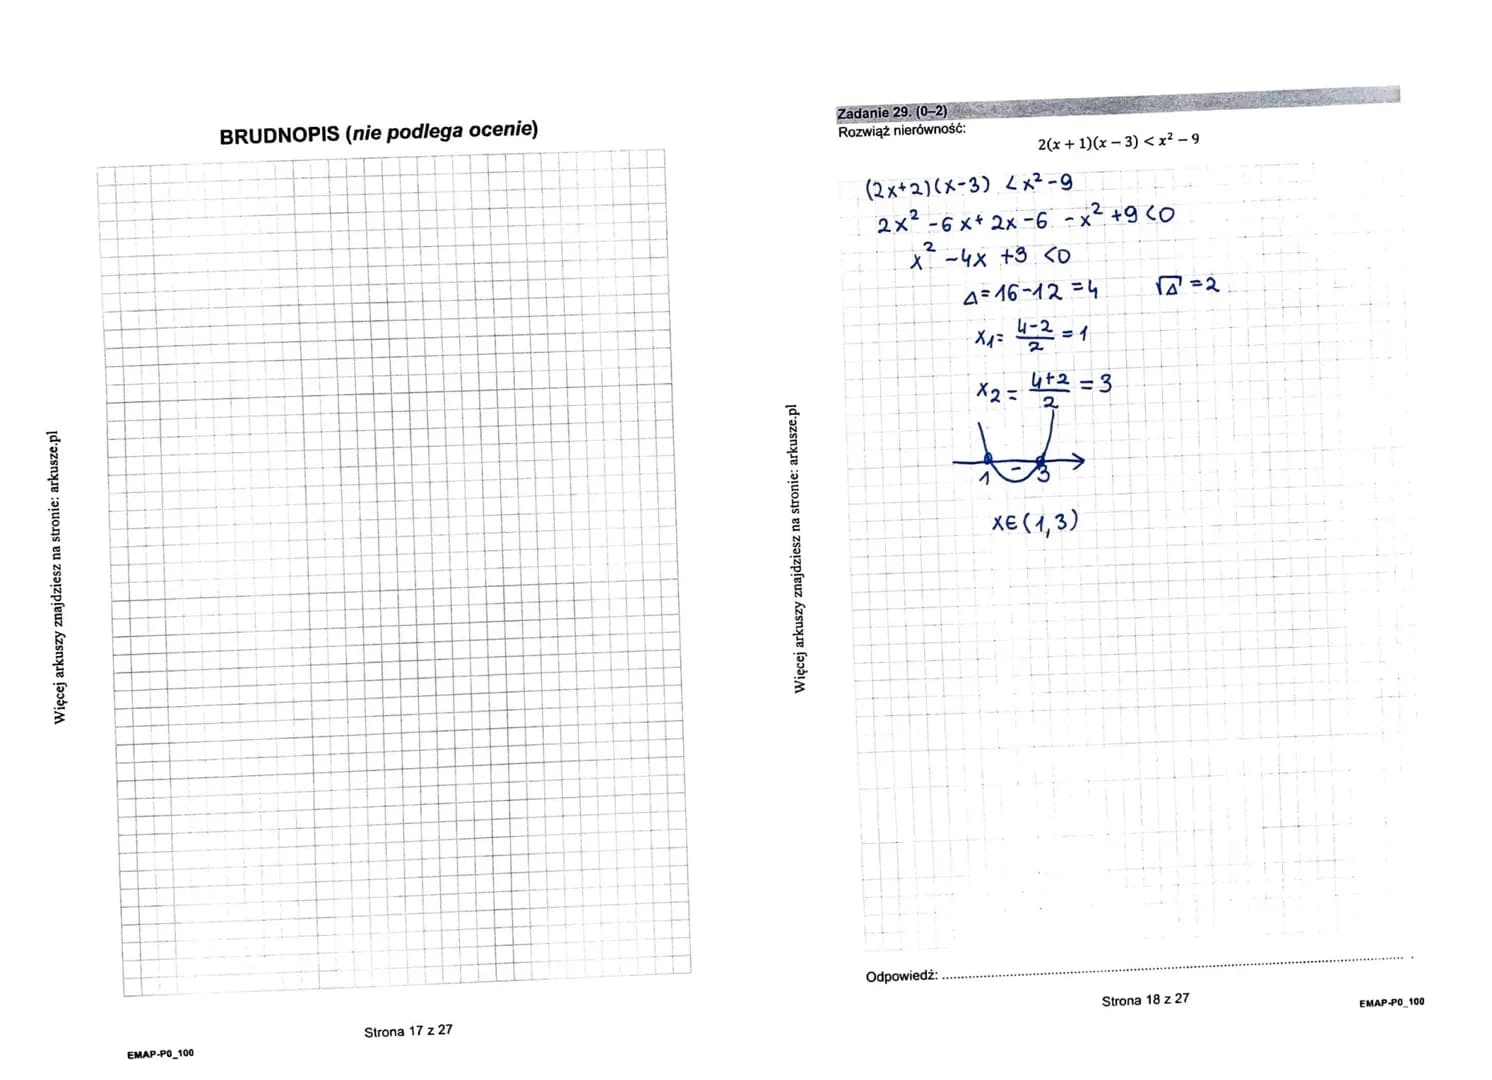 BRUDNOPIS (nie podlega ocenie)
Więcej arkuszy znajdziesz na stronie: arkusze.pl
Strona 17 z 27
EMAP-P0_100
Zadanie 29. (0–2)
Rozwiąż nierówność:
2(x + 1)(x – 3) < x² – 9
(2x+2)(x-3) < x² -9
2x² -6x+ 2x -6 -x² +9 <0
x² -4x +3 <0
Δ= 16-12 =4 √Δ =2
x₁= (4-2)/2 = 1
x₂ = (4+2)/2 = 3
1 - 3
x∈(1,3)
Więcej arkuszy znajdziesz na stronie: arkusze.pl
Odpowiedź: ....................
Strona 18 z 27
EMAP-P0_100